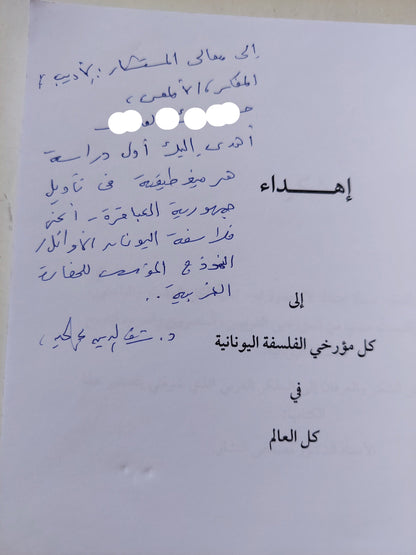 إلى معالى المستشار: الأديب،
المفكر، الألمعى،
أهدى إليك أول دراسة
هرمنيوطيقية فى تأويل
جمهورية العباقرة - أعنى
فلاسفة اليونان الأوائل/
النموذج المؤسس للحضارة
الغربية..
د.
إهـــــداء
إلى
كل مؤرخي الفلسفة اليونانية
في
كل العالم